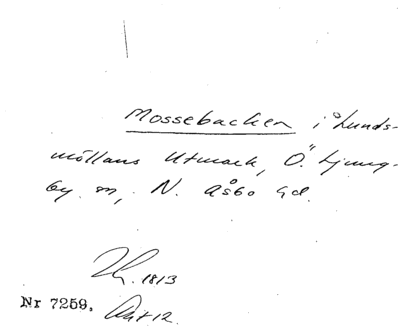 Mossebacken i Lunds-
möllans Utmark, Ö. Ljung-
by sn, N. Åsbo hd.
1813
Nr 7259.